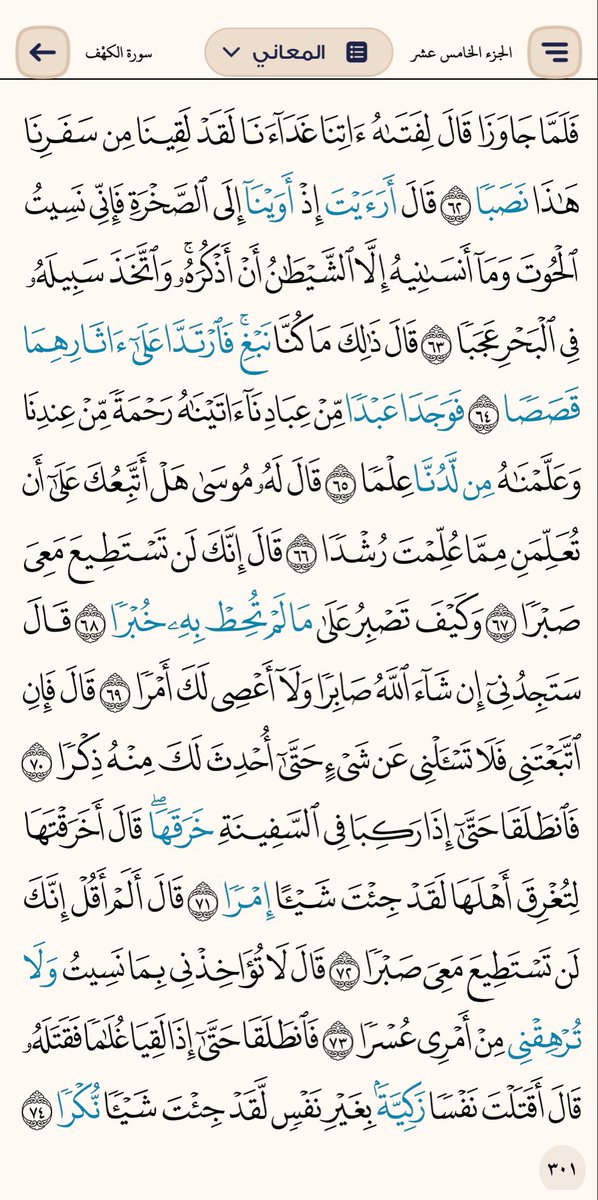 الجزء الخامس عشر
المعاني
سورة الكهف
فَلَمَّا جَاوَزَا قَالَ لِفَتَىٰهُ ءَاتِنَا غَدَآءَنَا لَقَدْ لَقِينَا مِن سَفَرِنَا
هَٰذَا نَصَبًا ٦٢ قَالَ أَرَءَيْتَ إِذْ أَوَيْنَآ إِلَى ٱلصَّخْرَةِ فَإِنِّى نَسِيتُ
ٱلْحُوتَ وَمَآ أَنسَىٰنِيهُ إِلَّا ٱلشَّيْطَٰنُ أَنْ أَذْكُرَهُۥ ۚ وَٱتَّخَذَ سَبِيلَهُۥ
فِى ٱلْبَحْرِ عَجَبًا ٦٣ قَالَ ذَٰلِكَ مَا كُنَّا نَبْغِ ۚ فَٱرْتَدَّا عَلَىٰٓ ءَاثَارِهِمَا
قَصَصًا ٦٤ فَوَجَدَا عَبْدًا مِّنْ عِبَادِنَآ ءَاتَيْنَٰهُ رَحْمَةً مِّنْ عِندِنَا
وَعَلَّمْنَٰهُ مِن لَّدُنَّا عِلْمًا ٦٥ قَالَ لَهُۥ مُوسَىٰ هَلْ أَتَّبِعُكَ عَلَىٰٓ أَن
تُعَلِّمَنِ مِمَّا عُلِّمْتَ رُشْدًا ٦٦ قَالَ إِنَّكَ لَن تَسْتَطِيعَ مَعِىَ
صَبْرًا ٦٧ وَكَيْفَ تَصْبِرُ عَلَىٰ مَا لَمْ تُحِطْ بِهِۦ خُبْرًا ٦٨ قَالَ
سَتَجِدُنِىٓ إِن شَآءَ ٱللَّهُ صَابِرًا وَلَآ أَعْصِى لَكَ أَمْرًا ٦٩ قَالَ فَإِنِ
ٱتَّبَعْتَنِى فَلَا تَسْـَٔلْنِى عَن شَىْءٍ حَتَّىٰٓ أُحْدِثَ لَكَ مِنْهُ ذِكْرًا ٧٠
فَٱنطَلَقَا حَتَّىٰٓ إِذَا رَكِبَا فِى ٱلسَّفِينَةِ خَرَقَهَا ۖ قَالَ أَخَرَقْتَهَا
لِتُغْرِقَ أَهْلَهَا لَقَدْ جِئْتَ شَيْـًٔا إِمْرًا ٧١ قَالَ أَلَمْ أَقُلْ إِنَّكَ
لَن تَسْتَطِيعَ مَعِىَ صَبْرًا ٧٢ قَالَ لَا تُؤَاخِذْنِى بِمَا نَسِيتُ وَلَا
تُرْهِقْنِى مِنْ أَمْرِى عُسْرًا ٧٣ فَٱنطَلَقَا حَتَّىٰٓ إِذَا لَقِيَا غُلَٰمًا فَقَتَلَهُۥ
قَالَ أَقَتَلْتَ نَفْسًا زَكِيَّةًۢ بِغَيْرِ نَفْسٍ لَّقَدْ جِئْتَ شَيْـًٔا نُّكْرًا ٧٤
٣٠١